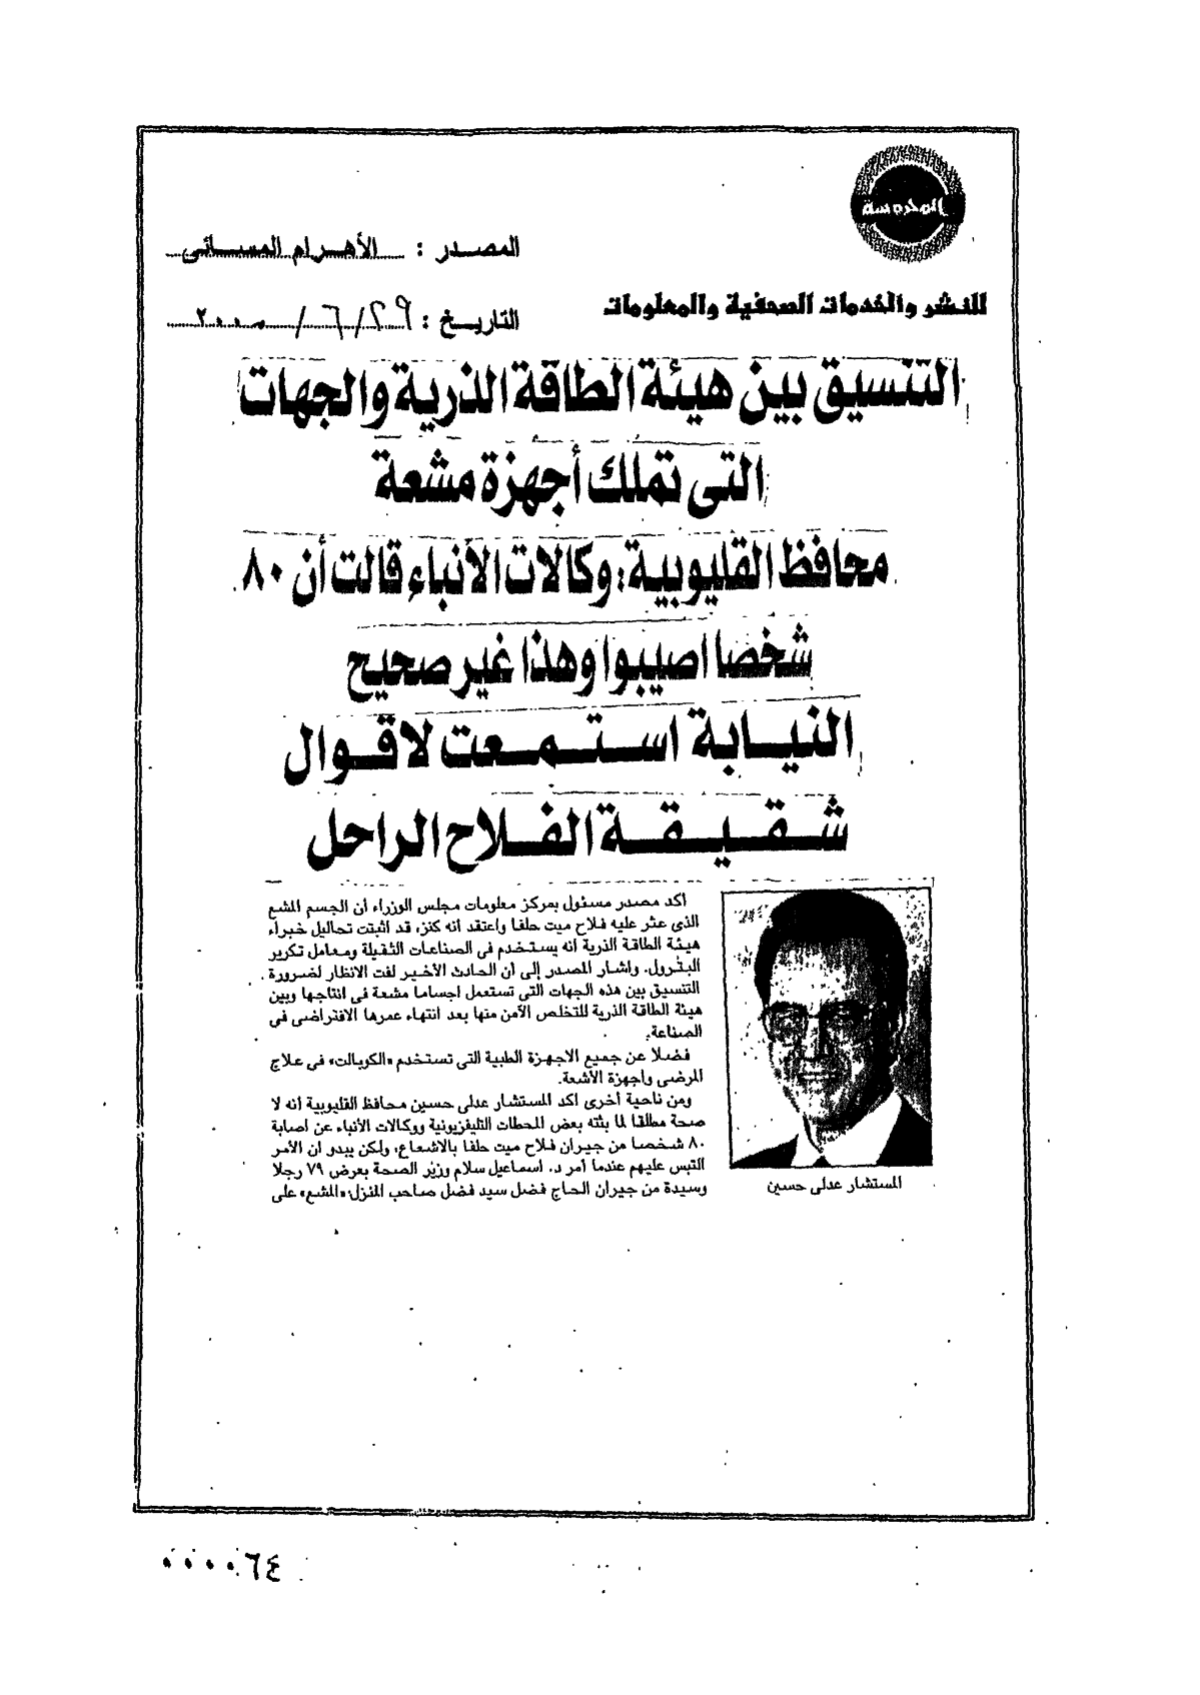 المحروسة
المصدر : الأهرام المسائى
للنشر والخدمات الصحفية والمعلومات
التاريخ : ٢٩/٦/٢٠٠٠
التنسيق بين هيئة الطاقة الذرية والجهات
التى تملك أجهزة مشعة
محافظ القليوبية: وكالات الأنباء قالت أن ٨٠
شخصا اصيبوا وهذا غير صحيح
النيابة استمعت لاقوال
شقيقة الفلاح الراحل
اكد مصدر مسئول بمركز معلومات مجلس الوزراء ان الجسم المشع
الذى عثر عليه فلاح ميت حلفا واعتقد انه كنز، قد اثبتت تحاليل خبراء
هيئة الطاقة الذرية انه يستخدم فى الصناعات الثقيلة ومعامل تكرير
البترول. واشار المصدر إلى أن الحادث الأخير لفت الانظار لضرورة
التنسيق بين هذه الجهات التى تستعمل اجساما مشعة فى انتاجها وبين
هيئة الطاقة الذرية للتخلص الآمن منها بعد انتهاء عمرها الافتراضى فى
الصناعة.
فضلا عن جميع الاجهزة الطبية التى تستخدم «الكوبالت» فى علاج
المرضى واجهزة الأشعة.
ومن ناحية أخرى اكد المستشار عدلى حسين محافظ القليوبية أنه لا
صحة مطلقا لما بثته بعض المحطات التليفزيونية ووكالات الأنباء عن اصابة
٨٠ شخصا من جيران فلاح ميت حلفا بالاشعاع، ولكن يبدو ان الأمر
التبس عليهم عندما أمر د. اسماعيل سلام وزير الصحة بعرض ٧٩ رجلا
وسيدة من جيران الحاج فضل سيد فضل صاحب المنزل «المشع» على
المستشار عدلى حسين
٠٠٠٠٦٤